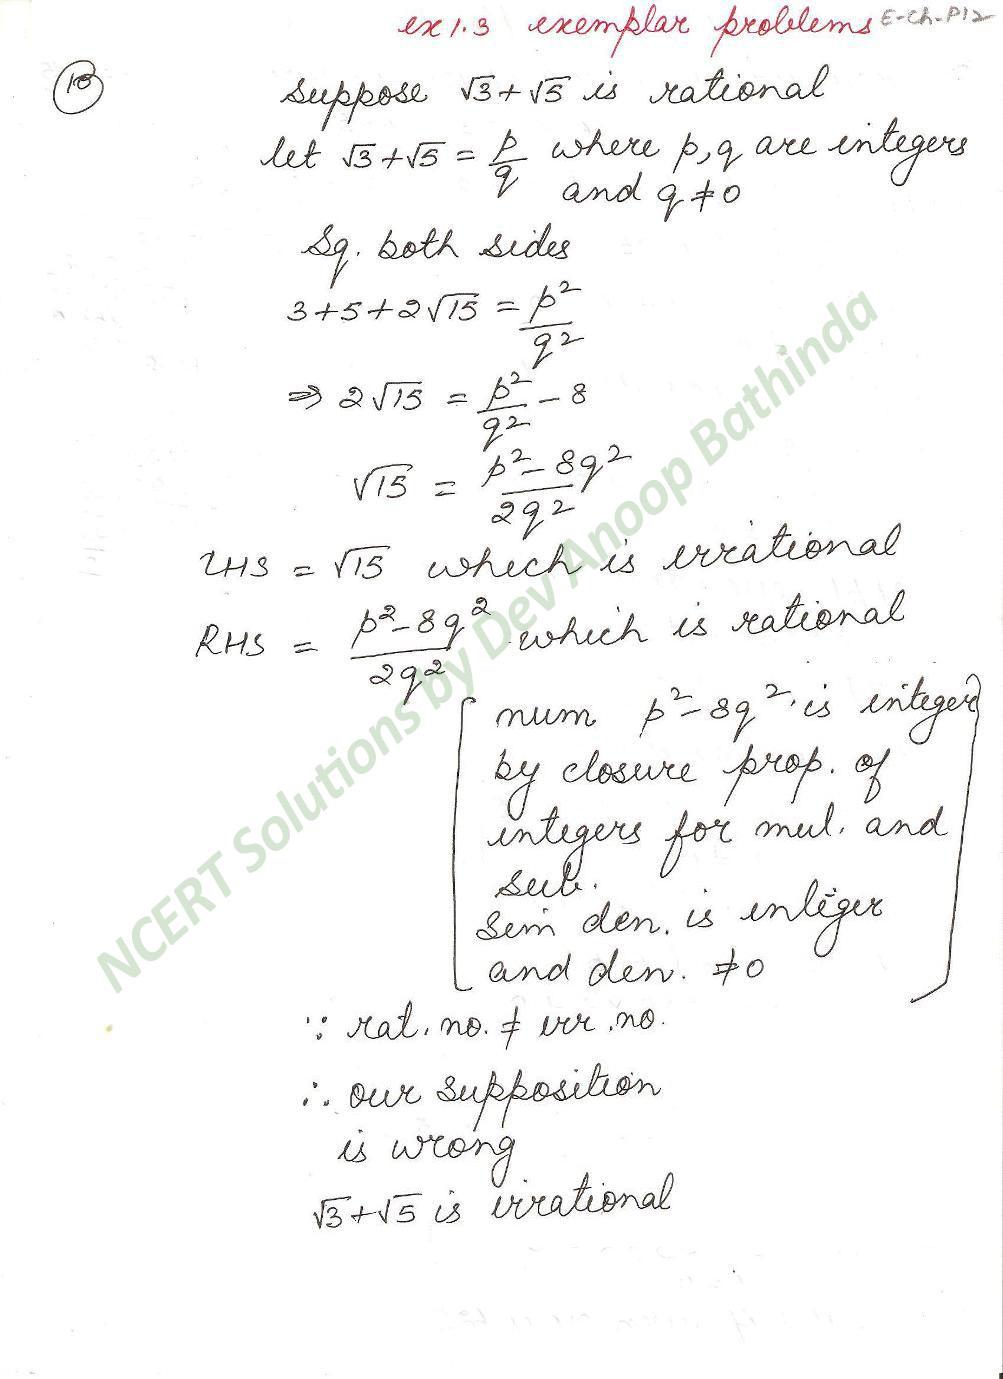 ex 1.3 exemplar problems E-Ch-P12
suppose √3+√5 is rational
let √3+√5 = p/q where p,q are integers
and q ≠ 0
Sq. both sides
3+5+2√15 = p²/q²
⇒ 2√15 = p²/q² - 8
√15 = p²-8q²/2q²
LHS = √15 which is irrational
RHS = p²-8q²/2q² which is rational
[num p²-8q² is integer
by closure prop. of
integers for mul. and
sub.
Sim den. is integer
and den. ≠ 0]
∵ rat. no. ≠ irr. no.
∴ our supposition
is wrong
√3+√5 is irrational
NCERT Solutions by Dev Anoop Bathinda